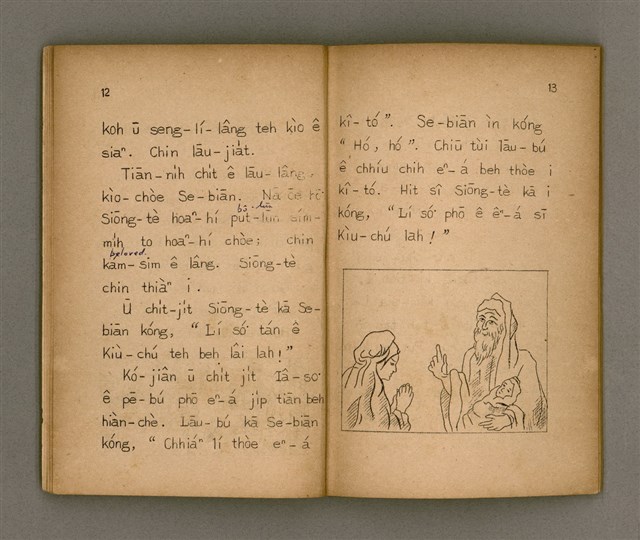 12
koh ū seng-lí-lâng teh kìo ê
siaⁿ. Chin lāu-jia̍t.
Tiān-ni̍h chi̍t ê lāu-lâng,
kìo-chòe Se-biān. Nā ōe hō͘
Siōng-tè hoaⁿ-hí pu̍t-lūn sím-
bô-lūn
mi̍h to hoaⁿ-hí chòe; chin
beloved
kám-sim ê lâng. Siōng-tè
chin thiàⁿ i.
Ū chi̍t-ji̍t Siōng-tè kā Se-
biān kóng, “Lí só͘ tán ê
Kiù-chú teh beh lâi lah!”
Kó-jiân ū chi̍t ji̍t Iâ-so͘
ê pē-bú phō eⁿ-á ji̍p tiān beh
hiàn-chè. Lāu-bú kā Se-biān
kóng, “Chhiáⁿ lí thòe eⁿ-á
13
kî-tó”. Se-biān ìn kóng
“Hó, hó”. Chiū tùi lāu-bú
ê chhíu chih eⁿ-á beh thòe i
kî-tó. Hit sî Siōng-tè kā i
kóng, “Lí só͘ phō ê êⁿ-á sī
Kìu-chú lah!”